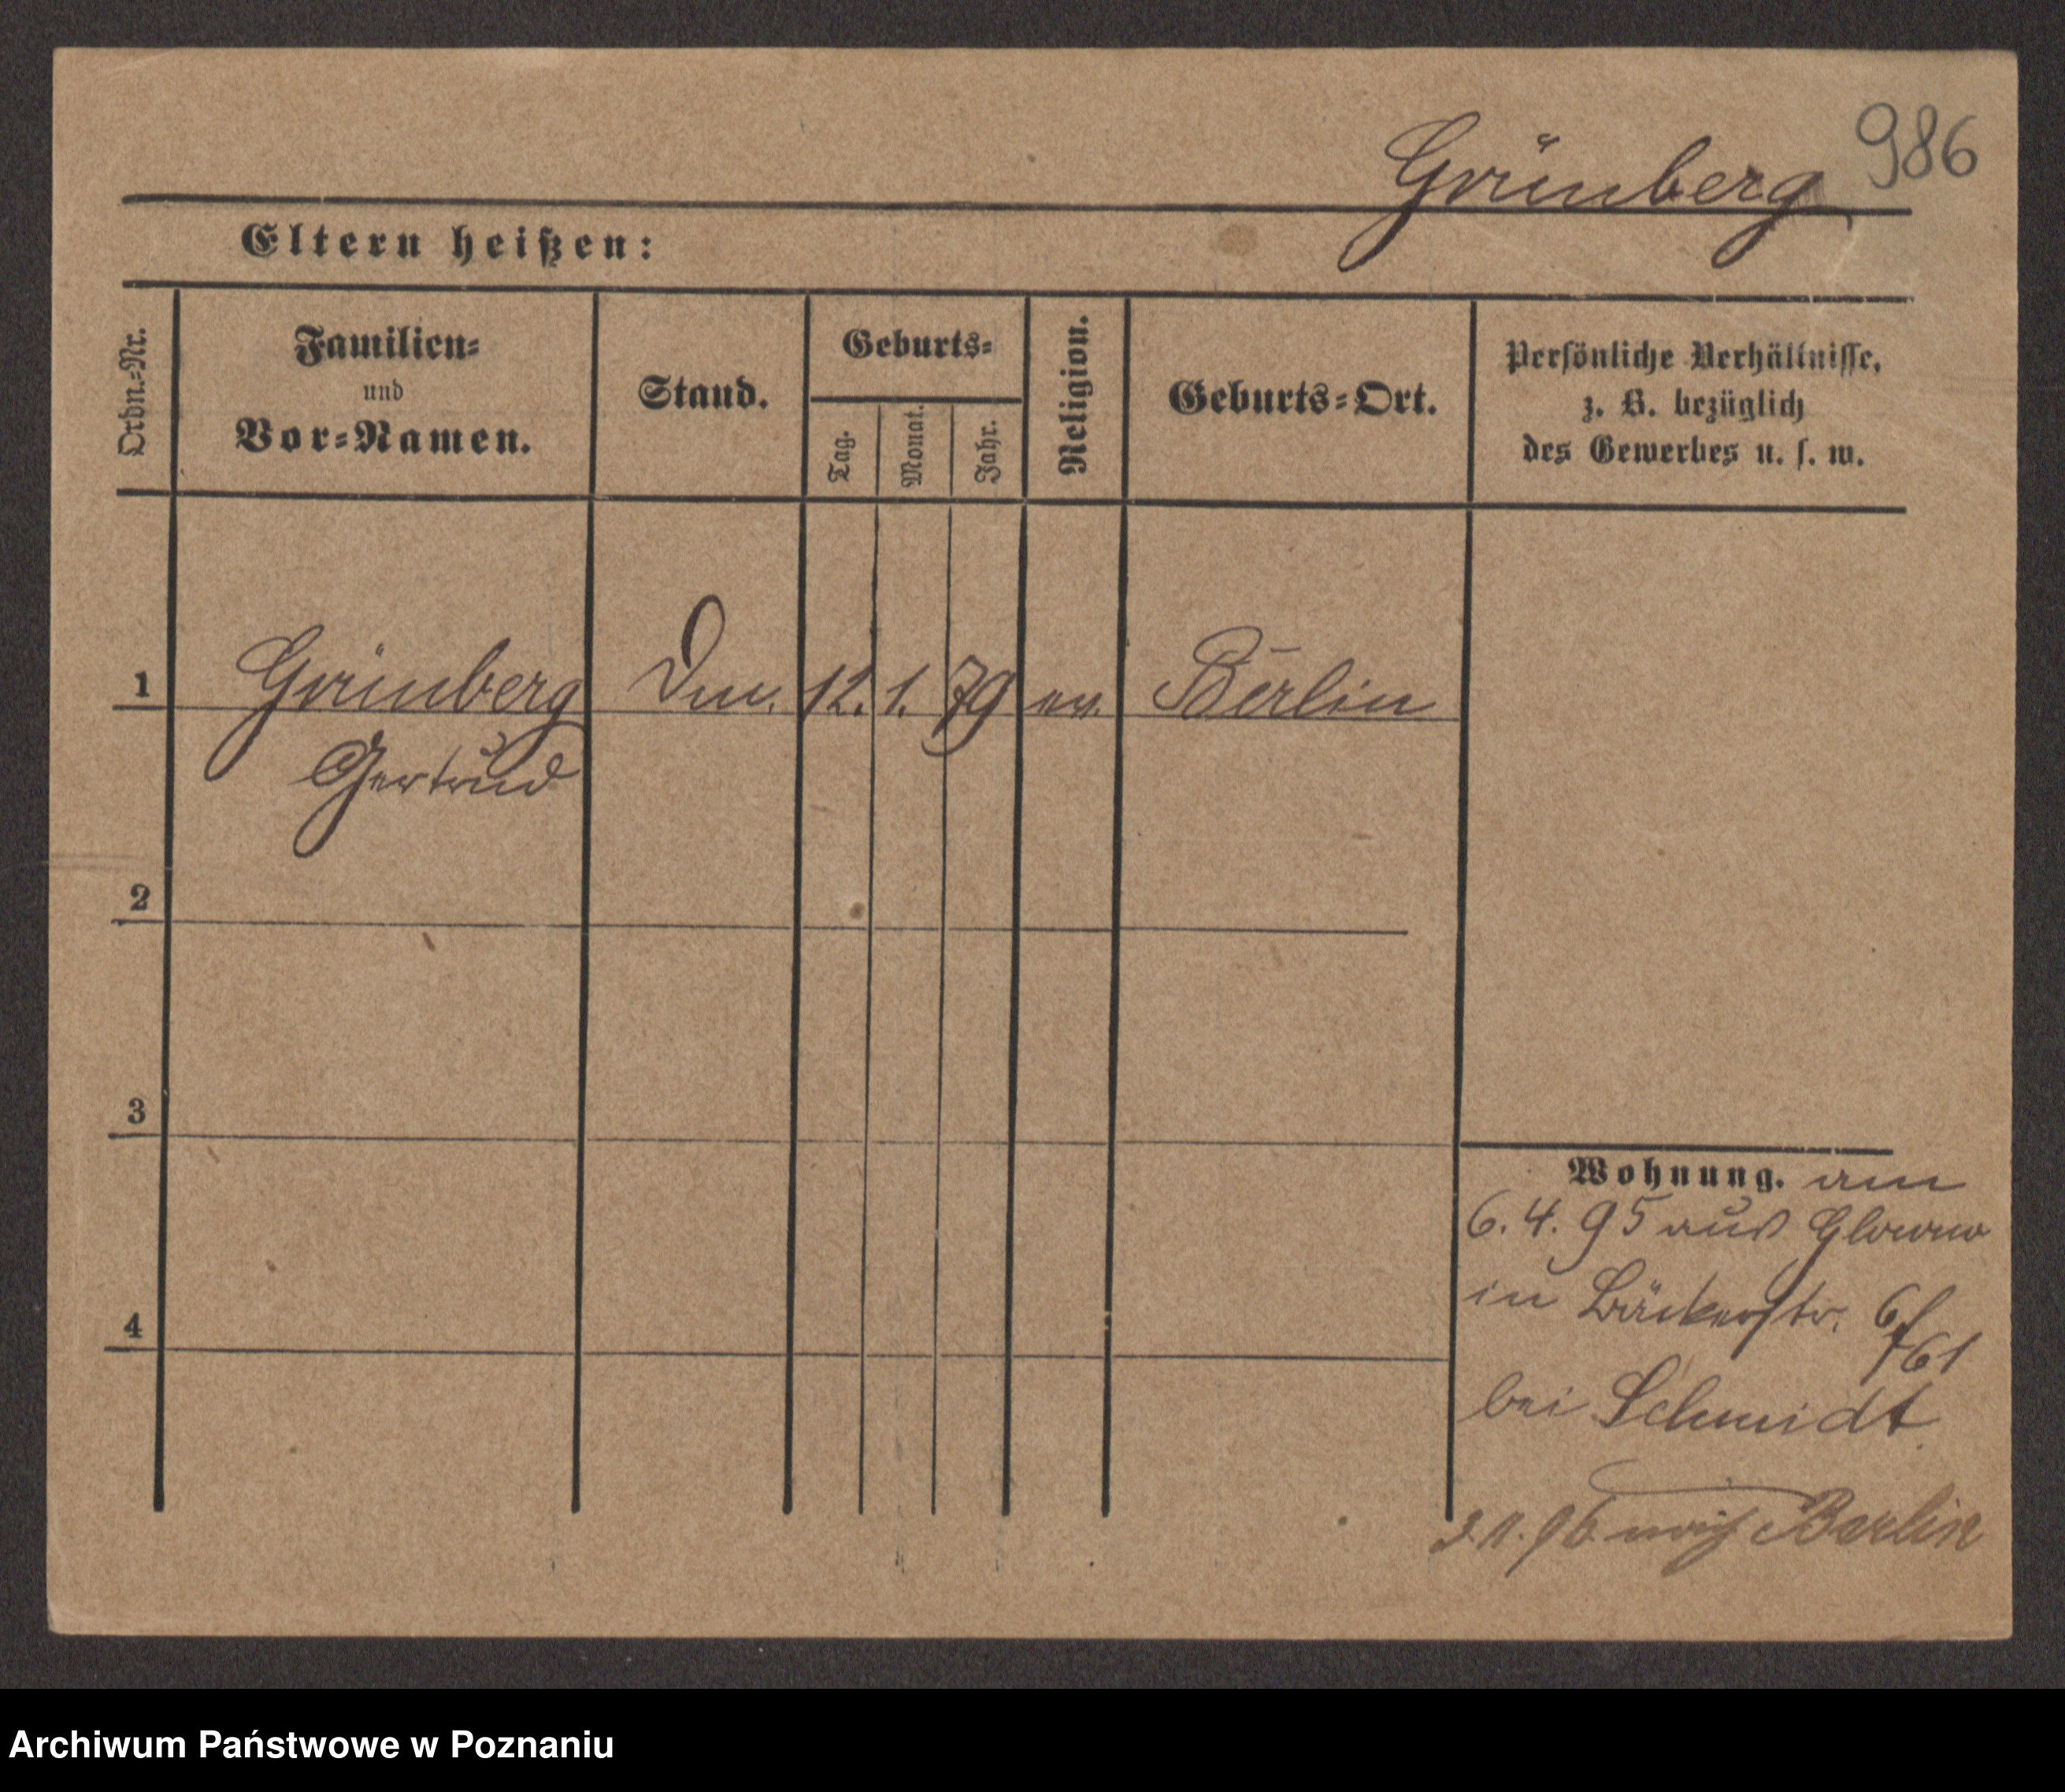 Grünberg 986
Eltern heißen:
Ordn.-Nr.
Familien-
und
Vor-Namen.
Stand.
Geburts-
Tag.
Monat.
Jahr.
Religion.
Geburts-Ort.
Persönliche Verhältnisse,
z. B. bezüglich
des Gewerbes u. s. w.
1 Grünberg 12. 1. 79 ev. Berlin
Gertrud
2
3
4
Wohnung. am
6. 4. 95 aus Glowno
in Bäckerstr. 6/
61
bei Schmidt
96 nach Berlin
Archiwum Państwowe w Poznaniu